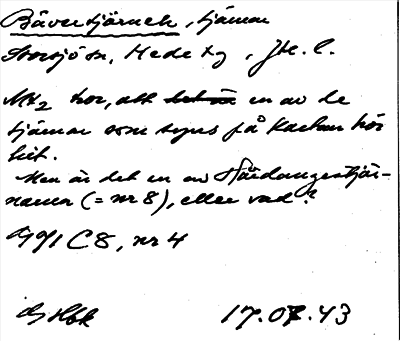 Bävertjärnen, tjärnar
Storsjö sn, Hede tg, Jtl. l.
Mk2 tror, att det är en av de
tjärnar som syns på kartan hör
hit.
Men är det en av Hårdangestjär-
narna (= nr 8), eller vad?
C8, nr 4
17.07.43